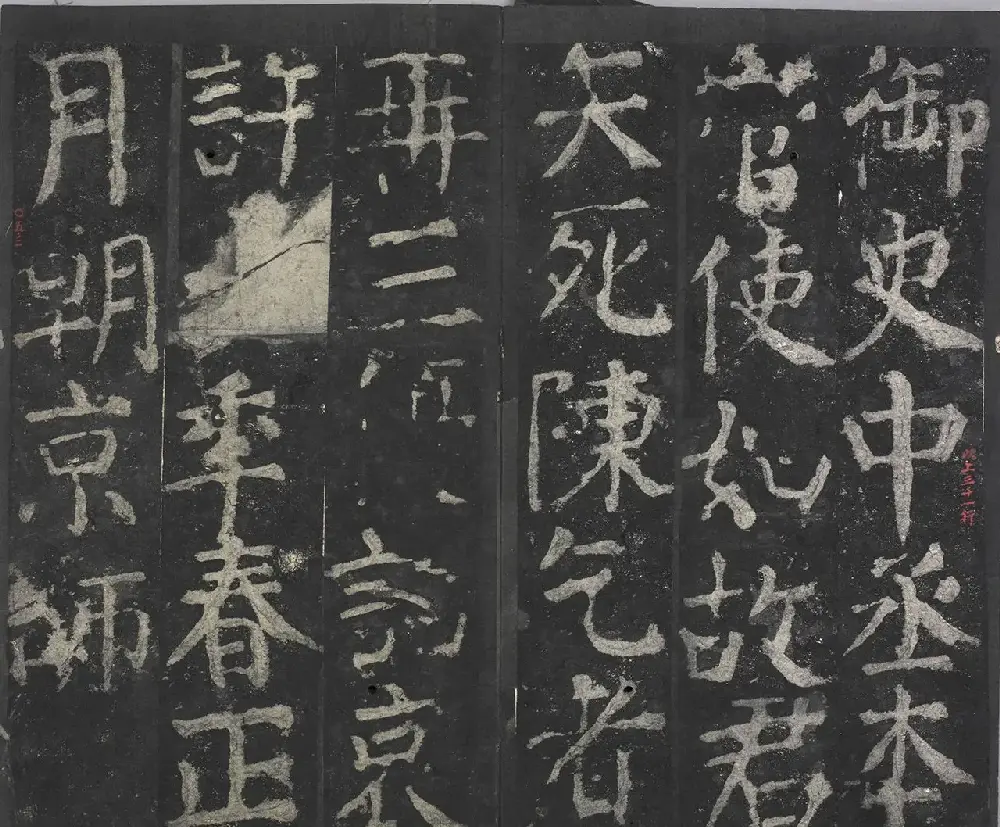 御史中丞本
管使如故君
矢死陳乞者
再三優詔褒
許年春正
月朝京師